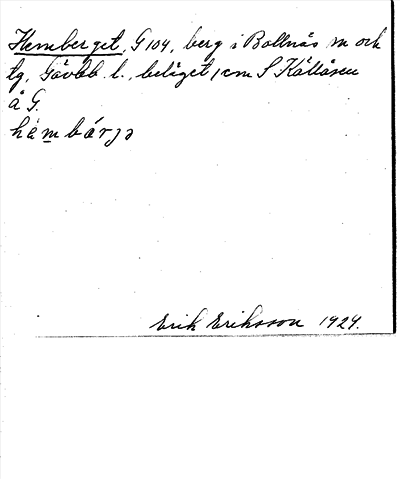 Hemberget, G 104, berg i Bollnäs sn och
tg, Gävleb. l., beläget 1 cm S Källåsen
å G.
hèmbárjə
Erik Eriksson 1929.